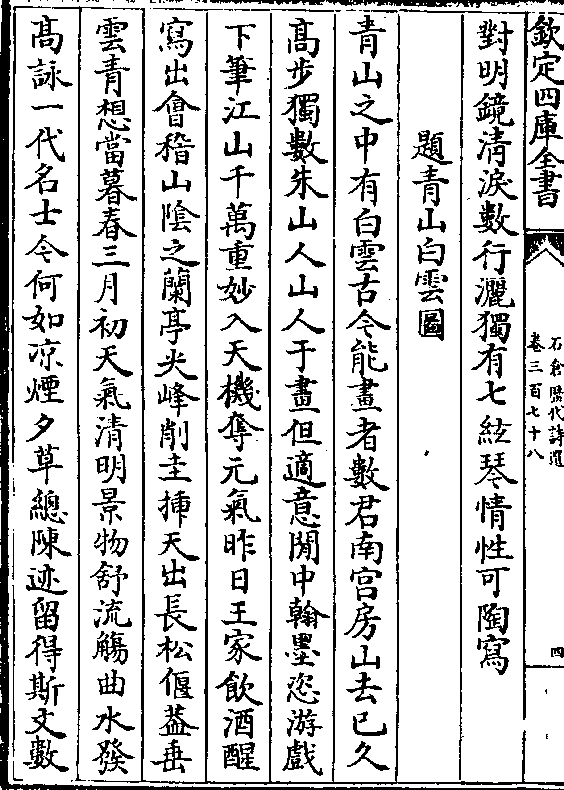 欽定四庫全書
石倉歷代詩選
卷三百七十八
四
對明鏡清淚數行灑獨有七絃琴情性可陶寫
題青山白雲圖
青山之中有白雲古今能畫者數君南宮房山去已久
髙步獨數朱山人山人于畫但適意閒中翰墨恣游戲
下筆江山千萬重妙入天機奪元氣昨日王家飲酒醒
寫出會稽山陰之蘭亭尖峰削圭揷天出長松偃葢垂
雲青想當暮春三月初天氣清明景物舒流觴曲水發
髙詠一代名士今何如凉煙夕草總陳迹留得斯文數